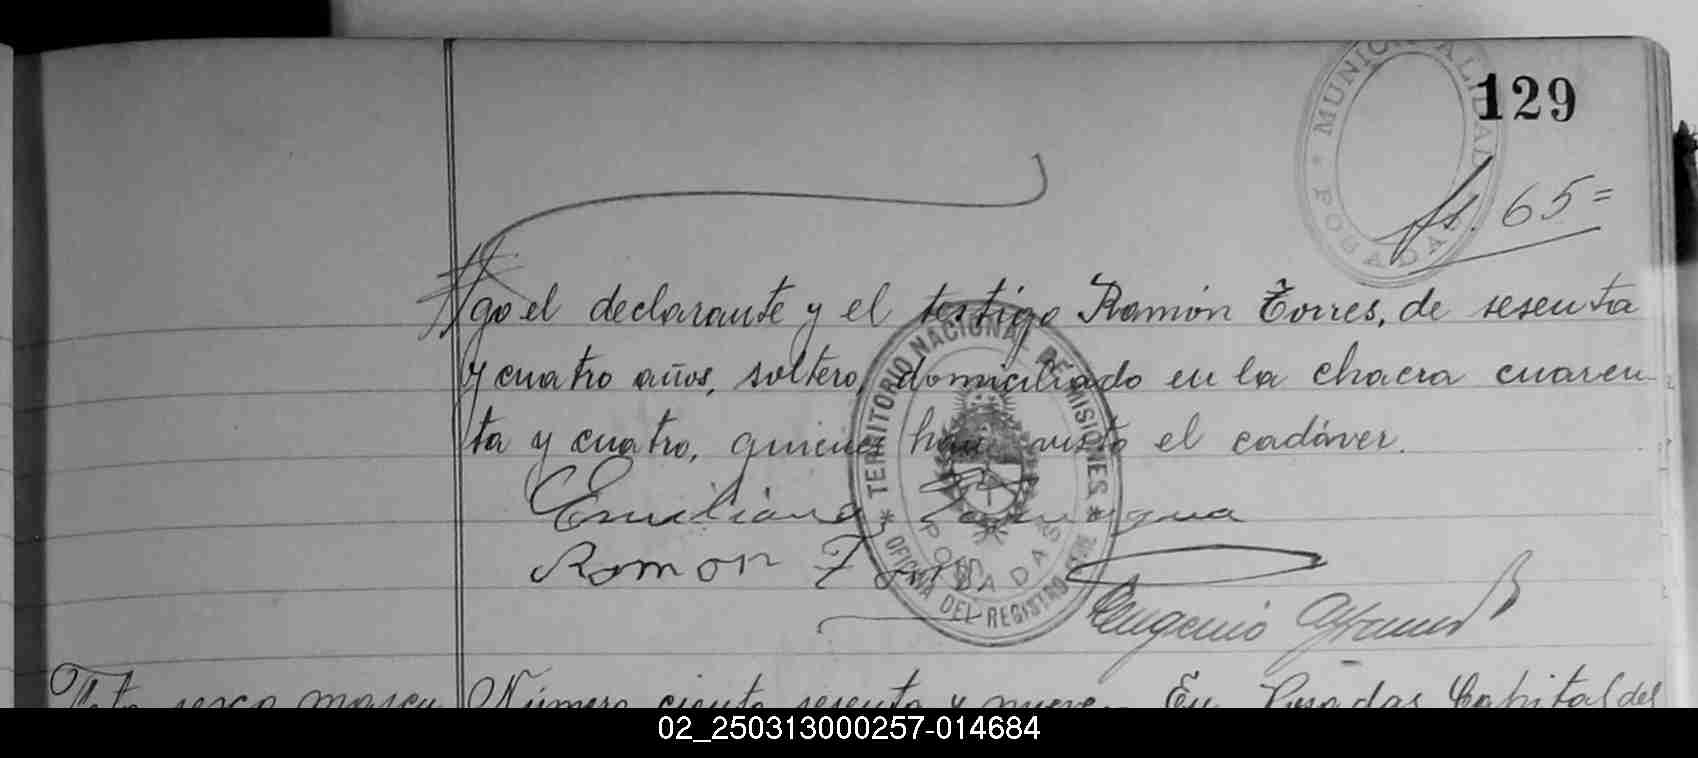 MUNICIPALIDAD * POSADAS *
129
fs. 65=
go el declarante y el testigo Ramón Torres, de sesenta
y cuatro años, soltero, domiciliado en la chacra cuaren-
ta y cuatro, quienes han visto el cadáver.
TERRITORIO NACIONAL DE MISIONES * OFICINA DEL REGISTRO * POSADAS
Emiliano
Ramon Torres
Eugenio
Nato sexo mascu
Número ciento sesenta y nueve. En Posadas Capital del
02_250313000257-014684